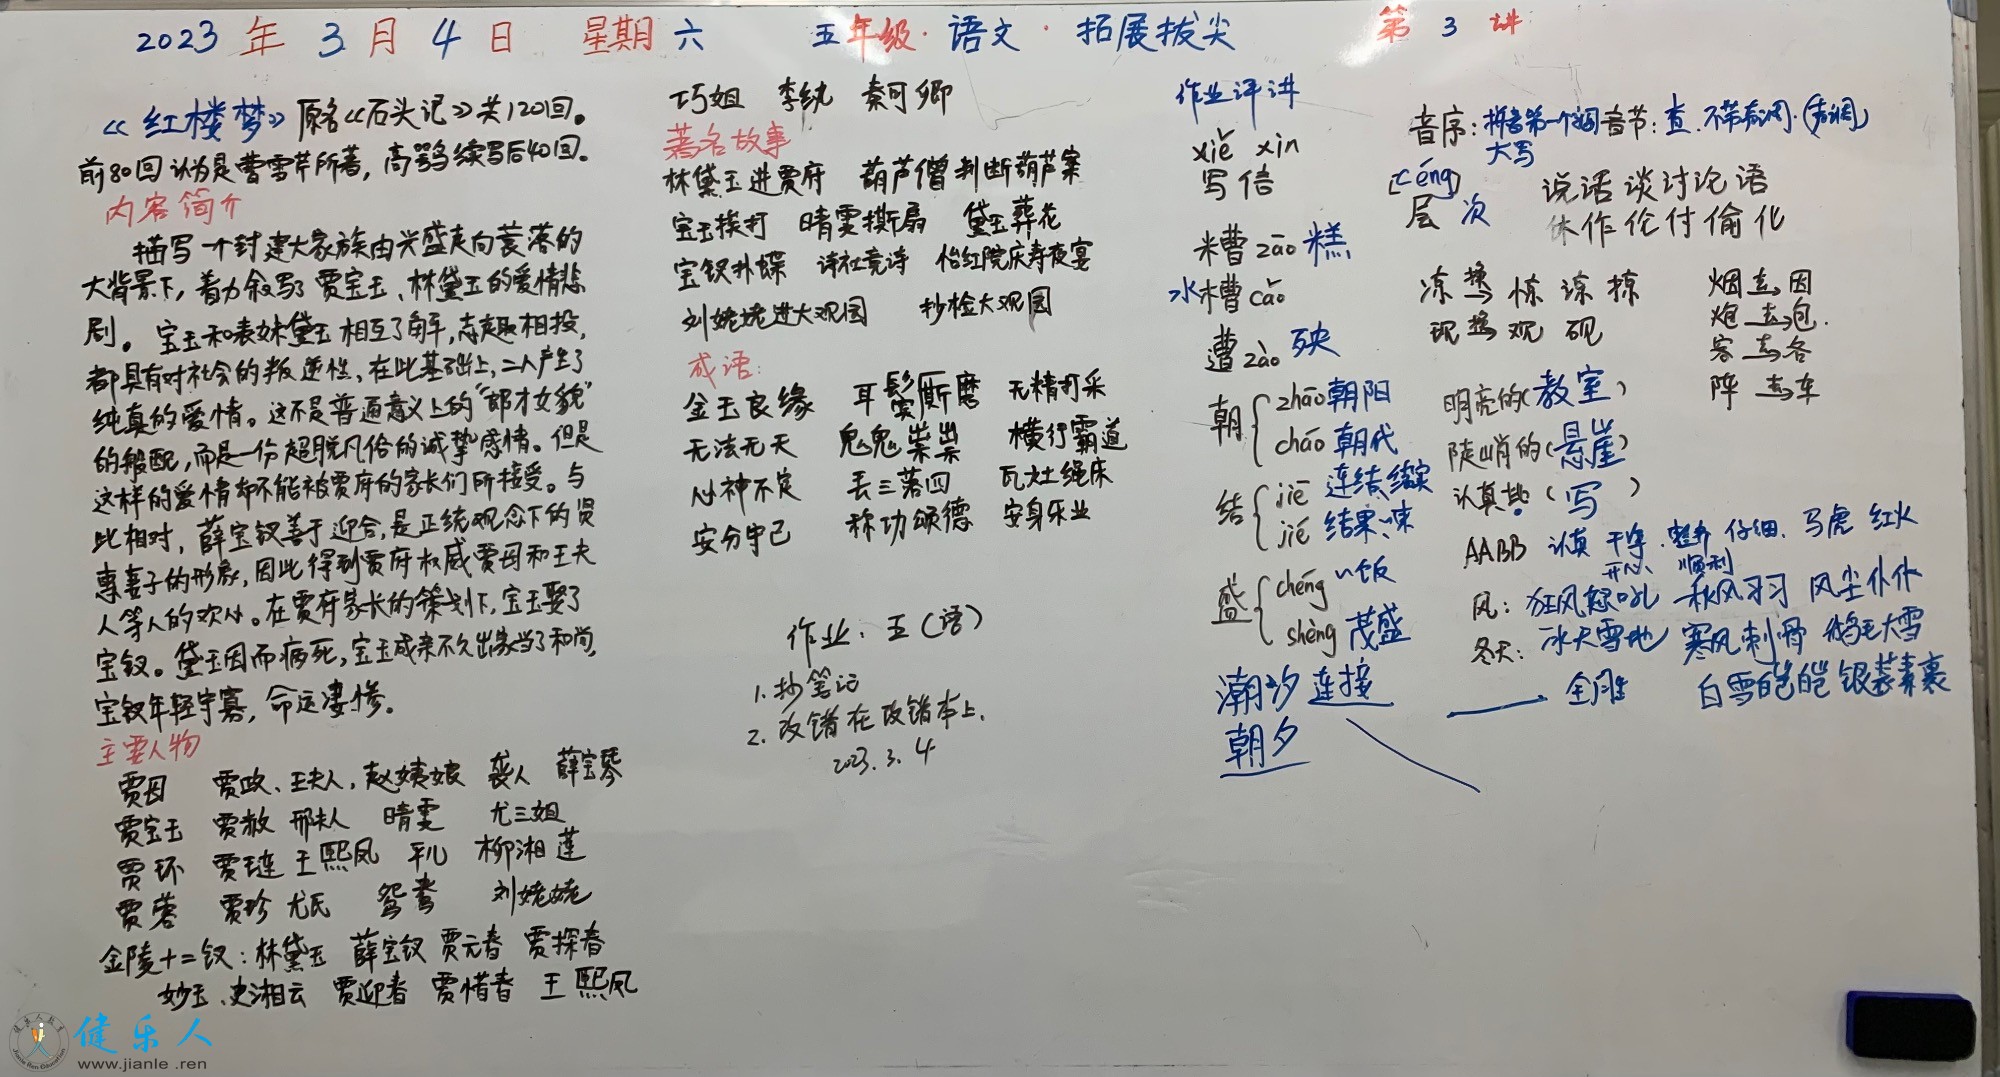 2023年3月4日 星期六 五年级·语文·拓展拔尖 第3讲
《红楼梦》原名《石头记》共120回。
前80回认为是曹雪芹所著，高鹗续写后40回。
内容简介
描写一个封建大家族由兴盛走向衰落的
大背景下，着力叙写了贾宝玉、林黛玉的爱情悲
剧。宝玉和表妹黛玉相互了解，志趣相投，
都具有对社会的叛逆性，在此基础上，二人产生了
纯真的爱情。这不是普通意义上的"郎才女貌"
的般配，而是一份超脱风俗的诚挚感情。但是
这样的爱情却不能被贾府的家长们所接受。与
此相对，薛宝钗善于迎合，是正统观念下的贤
惠妻子的形象，因此得到贾府权威贾母和王夫
人等人的欢心。在贾府家长的策划下，宝玉娶了
宝钗。黛玉因而病死，宝玉成亲不久出家当了和尚，
宝钗年轻守寡，命运凄惨。
主要人物
贾母 贾政、王夫人，赵姨娘 袭人 薛宝琴
贾宝玉 贾赦 邢夫人 晴雯 尤三姐
贾环 贾琏 王熙凤 平儿 柳湘莲
贾蓉 贾珍 尤氏 鸳鸯 刘姥姥
金陵十二钗：林黛玉 薛宝钗 贾元春 贾探春
妙玉、史湘云 贾迎春 贾惜春 王熙凤
巧姐 李纨 秦可卿
著名故事
林黛玉进贾府 葫芦僧判断葫芦案
宝玉挨打 晴雯撕扇 黛玉葬花
宝钗扑蝶 诗社竞诗 怡红院庆寿夜宴
刘姥姥进大观园 抄检大观园
成语：
金玉良缘 耳鬓厮磨 无精打采
无法无天 鬼鬼祟祟 横行霸道
心神不定 丢三落四 瓦灶绳床
安分守己 称功颂德 安身乐业
作业：五（语）
1.抄笔记
2.改错在改错本上.
2023.3.4
作业评讲
xiě xìn
写信
糟 zāo 糕
水槽 cáo
遭 zāo 殃
朝 zhāo 朝阳
cháo 朝代
结 jiē 连结、结实
jié 结果、结束
盛 chéng ~饭
shèng 茂盛
潮汐 连接
朝夕
音序：拼音第一个 大写 音节：查.不带声调.(声调)
[céng]
层次
说话谈讨论语
休作伦付偷化
冻 换→ 惊 谅 掠
现 换→ 观 砚
烟 去→ 因
炮 去→ 包.
客 去→ 各
阵 去→ 车
明亮的(教室)
陡峭的(悬崖)
认真地(写)
AABB 认真 干净.整齐 仔细.马虎 红火
开心 顺利
风：狂风怒吼 秋风习习 风尘仆仆
冬天：冰天雪地 寒风刺骨 鹅毛大雪
白雪皑皑 银装素裹
健乐人
www.jianle.ren